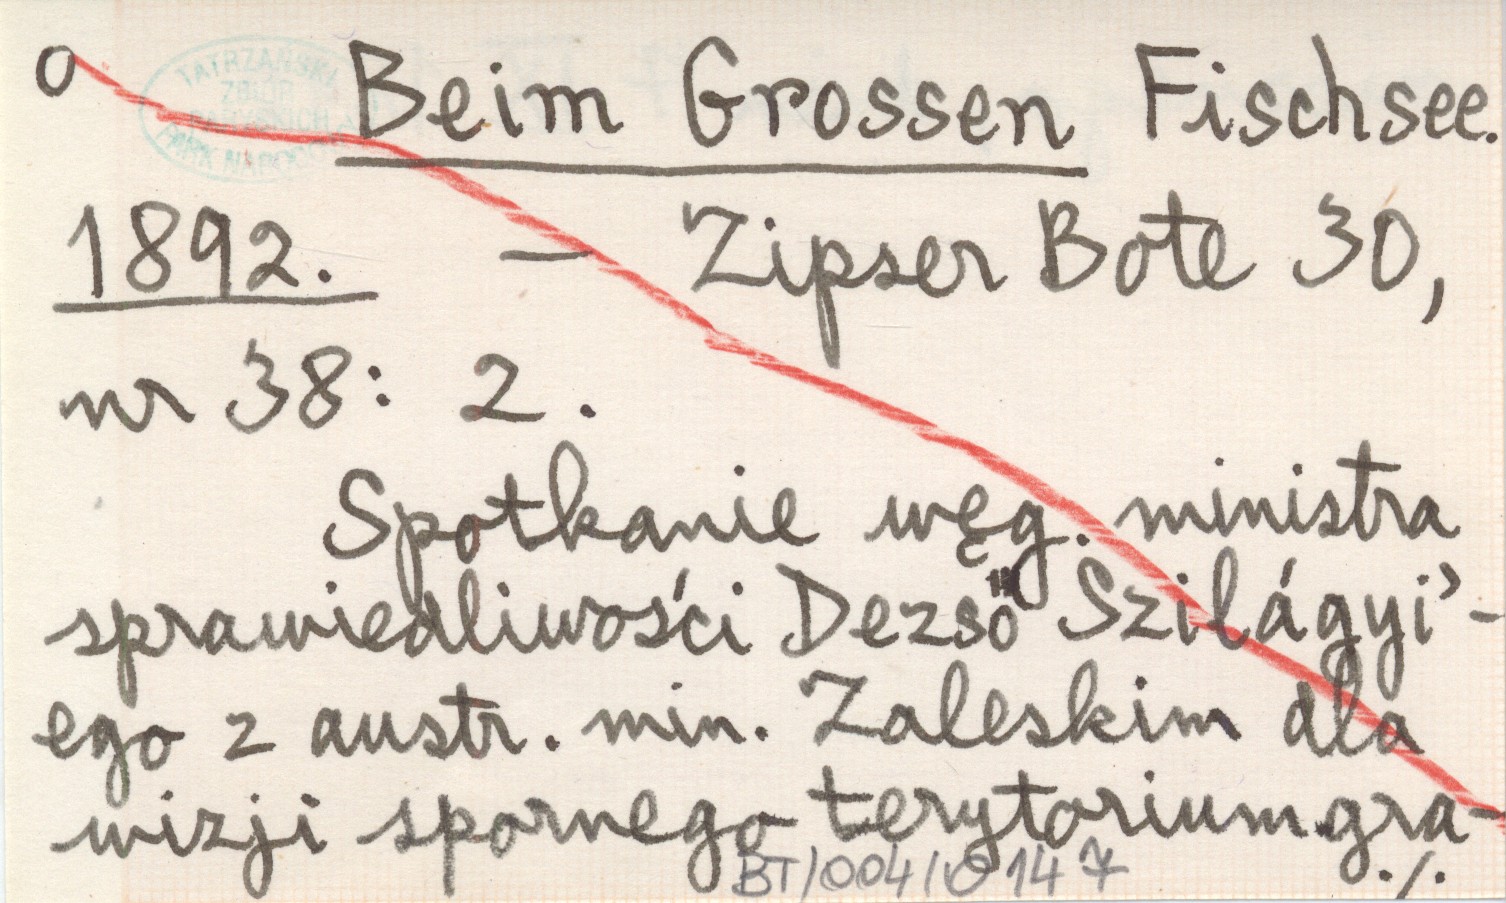 o Beim Grossen Fischsee.
TATRZAŃSKI
ZBIÓR
PARYSKICH
PARK NARODOWY
1892. — Zipser Bote 30,
nr 38: 2.
Spotkanie węg. ministra
sprawiedliwości Dezső Szilágyi'-
ego z austr. min. Zaleskim dla
wizji spornego terytorium gra-
BT/004/0147
./.